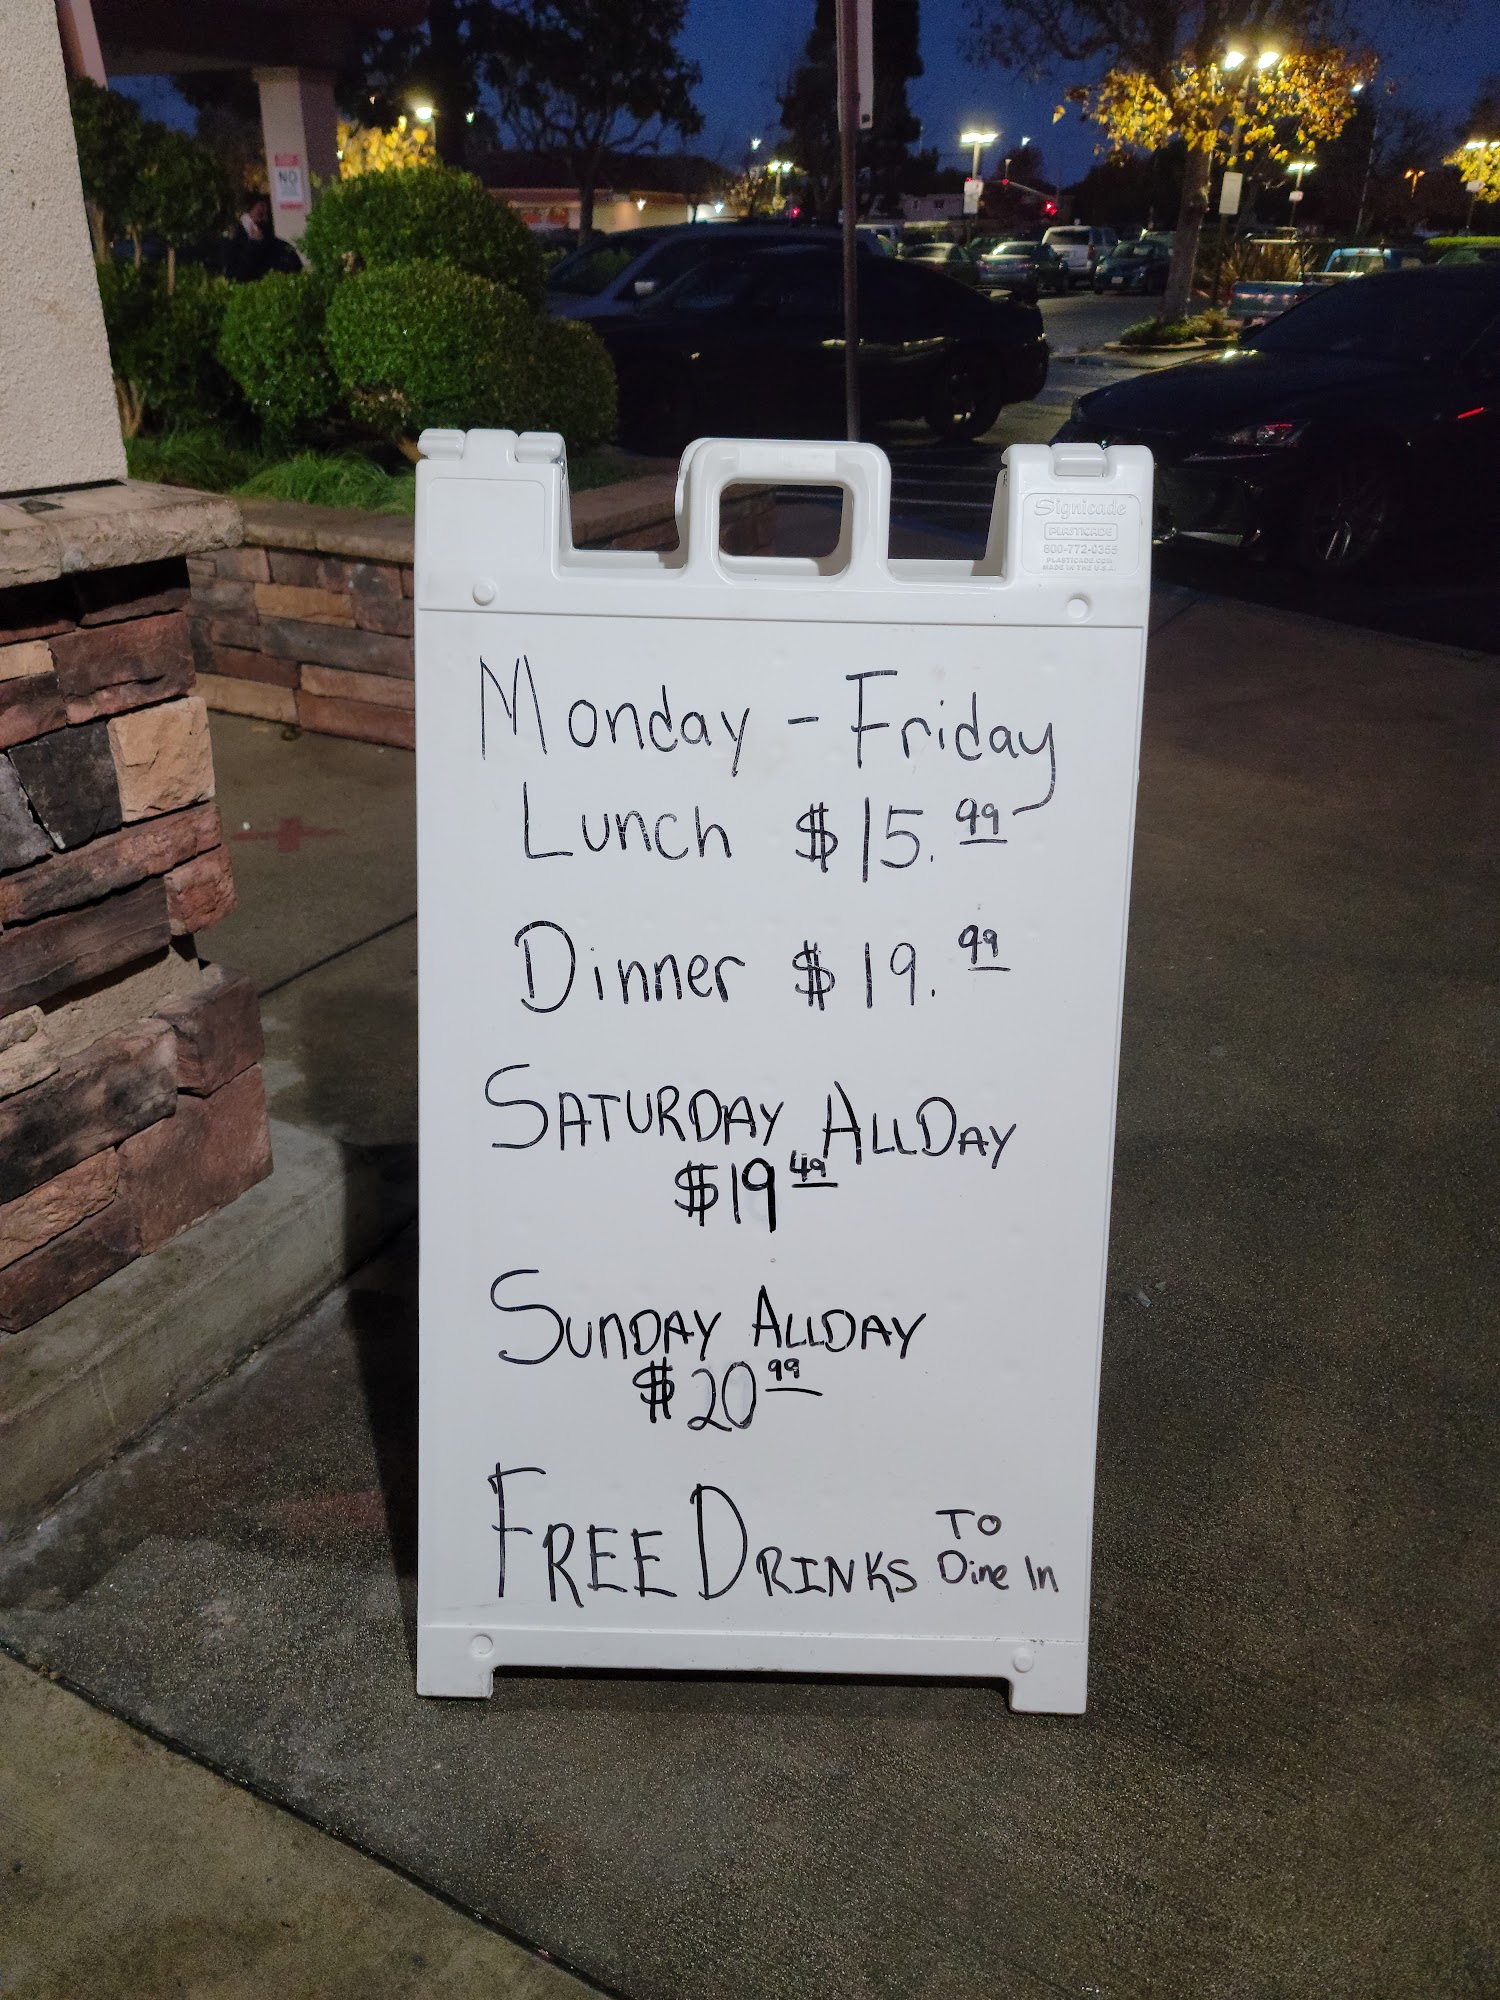 NO
Signicade
PLASTICADE
800-772-0355
PLASTICADE.COM
MADE IN THE U.S.A.
Monday - Friday
Lunch $15.99
Dinner $19.99
SATURDAY ALLDAY
$19 49
SUNDAY ALLDAY
$20 99
FREE DRINKS TO
Dine In